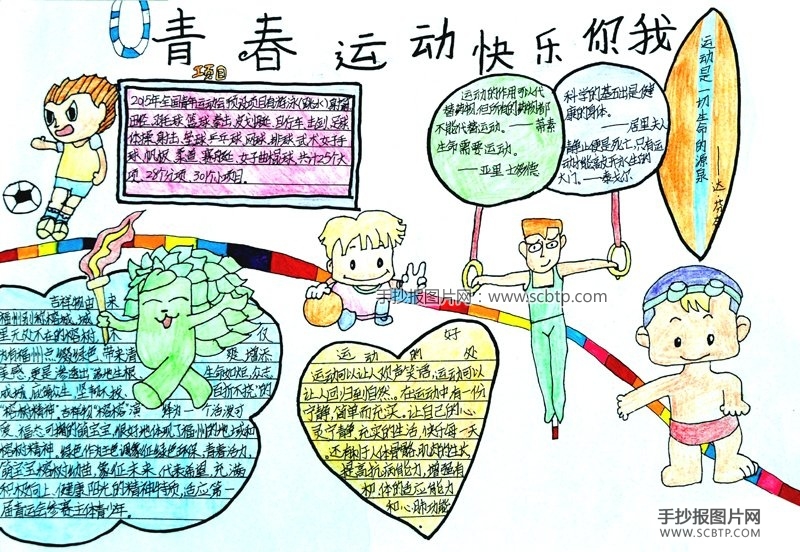 青春运动快乐你我
项目
2015年全国青年运动会预设项目有游泳(跳水)、射箭
田径、羽毛球、篮球、拳击、皮划艇、自行车、击剑、足球
体操、射击、垒球、乒乓球、网球、排球、武术、女子手
球、帆板、柔道、赛艇、女子曲棍球、共计25个大
项、28个分项、30个小项目。
运动的作用可以代
替药物,但所有的药物都
不能代替运动。——蒂素
生命需要运动。
——亚里士多德
科学的基础是健
康的身体。
——居里夫人
静止便是死亡,只有运
动才能敲开永生的
大门。——泰戈尔
运动是一切生命的源泉
——达芬奇
手抄报图片网:www.scbtp.com
吉祥物由来
福州别称榕城,城
里无处不在的榕树,不仅
为福州点缀绿色,带来清爽,增添
美感,更是渗透出
生命如炬,众志
成城
榕树精神。吉祥物"榕榕"
为一个活泼可
榕树精神,绿色作主色调象征绿色环保、青春活力,
萌宝宝榕树幼苗,象征未来,代表希望,充满
积极向上、健康阳光的精神特质,适应第一
届青运会参赛主体青少年。
运动的好处
运动可以让人欢声笑语,运动可以
让人回归到自然。在运动中有一份
宁静,简单而充实。让自己的心
灵宁静,充实的生活,快乐每一天
还有利于人体骨骼,肌肉的生长
提高抗病能力,增强有
机体的适应能力
和心肺功能
手抄报图片网
WWW.SCBTP.COM